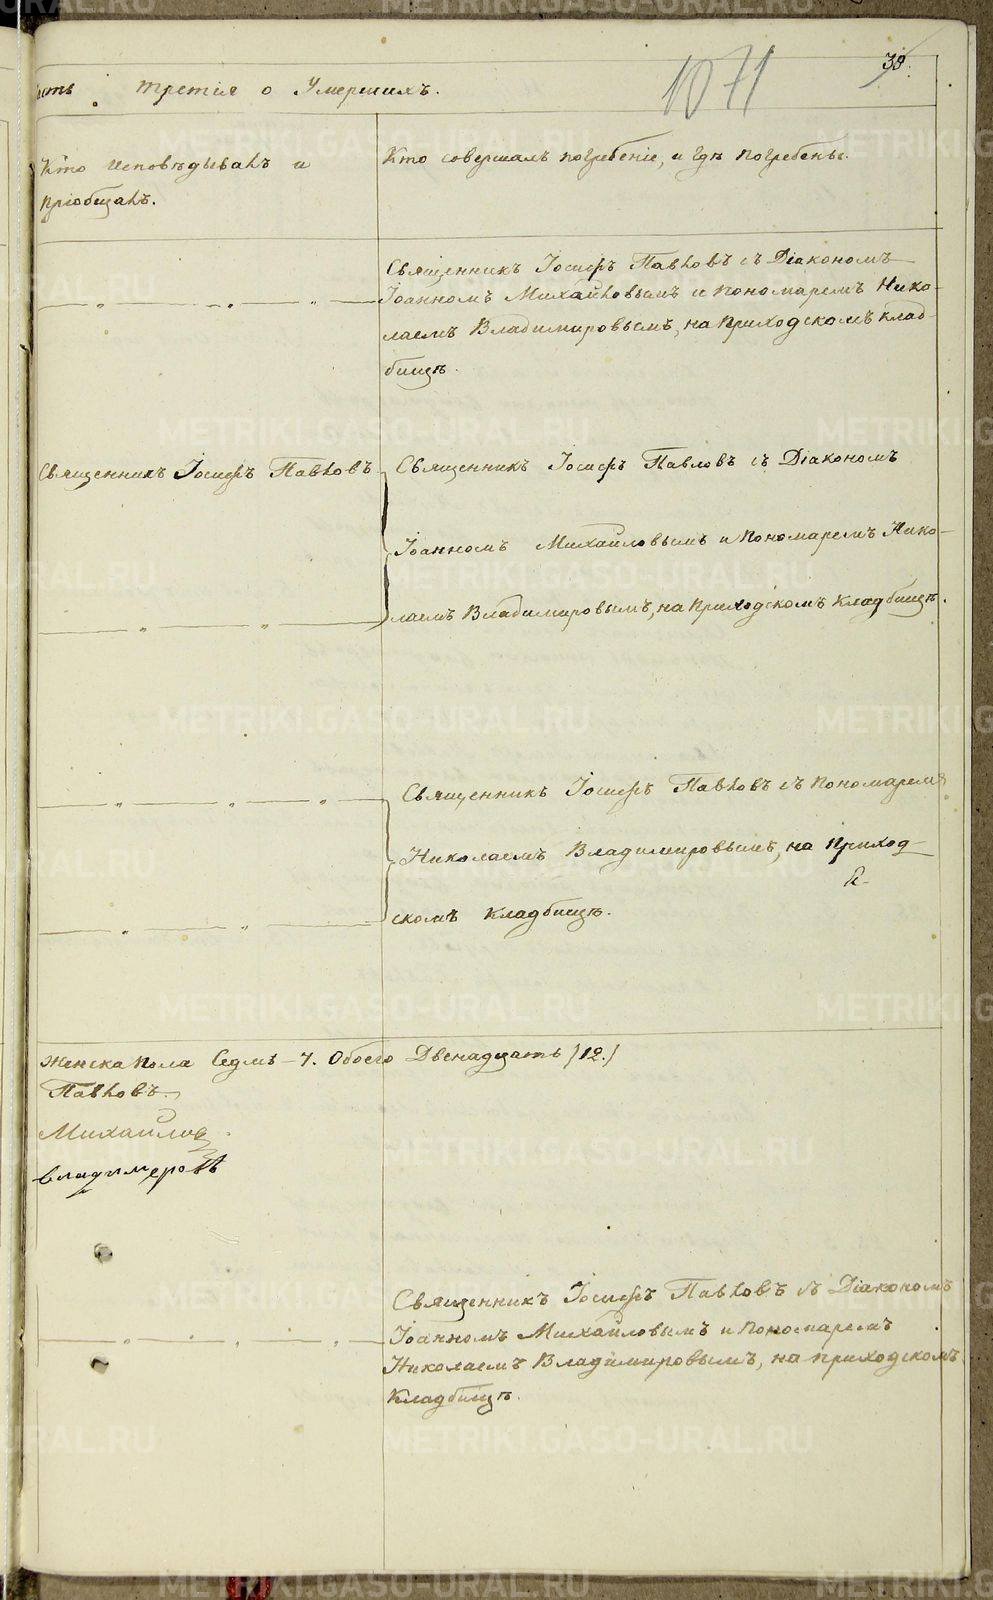 38.
1071
асть третія о Умершихъ.
Кто исповѣдывалъ и
пріобщалъ.
Кто совершалъ погребеніе, и гдѣ погребены.
Священникъ Іосифъ Павловъ съ Діакономъ
Іоанномъ Михайловымъ и пономаремъ Нико-
лаемъ Владимировымъ, на приходскомъ клад-
бищѣ.
Священникъ Іосифъ Павловъ
Священникъ Іосифъ Павловъ съ Діакономъ
Іоанномъ Михайловымъ и пономаремъ Нико-
лаемъ Владимировымъ, на приходскомъ кладбищѣ.
Священникъ Іосифъ Павловъ съ пономаремъ
Николаемъ Владимировымъ, на приход-
скомъ кладбищѣ.
Женска пола Седмь - 7. Обоего Двенадцать (12.)
Павловъ
Михайловъ
Владимеровъ
Священникъ Іосифъ Павловъ съ Діакономъ
Іоанномъ Михайловымъ и пономаремъ
Николаемъ Владимировымъ, на приходскомъ
кладбищѣ.
METRIKI.GASO-URAL.RU